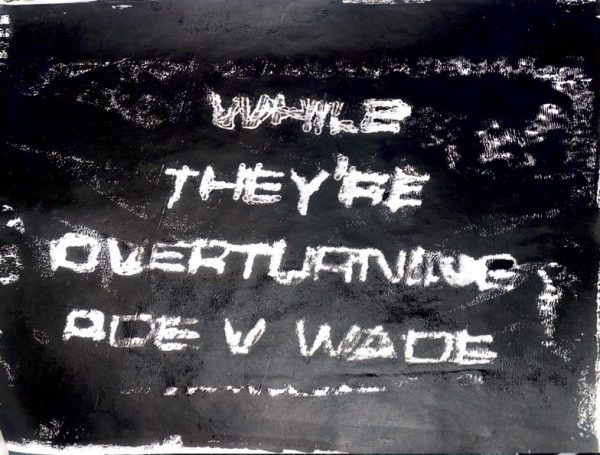 WHILE
THEY'RE
OVERTURNING
ROE V WADE